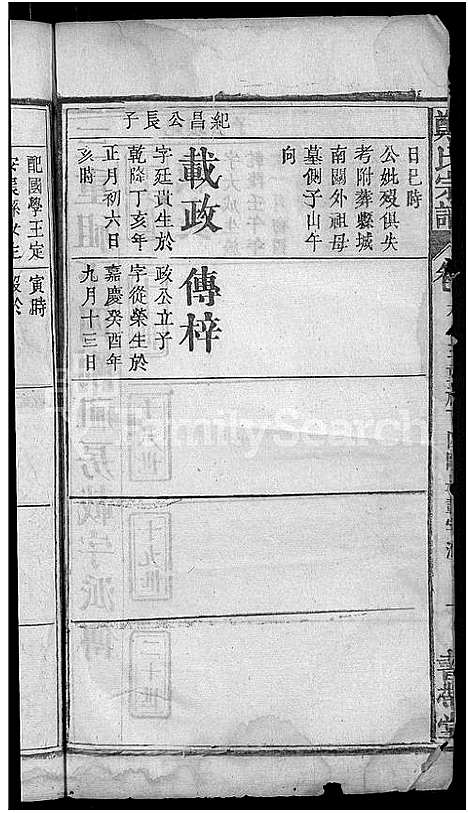 日巳時
公妣歿俱失
考附葬縣城
南關外祖母
墓側子山午
向
紀昌公長子
載政
字廷貴生於
乾隆丁亥年
正月初六日
亥時
傳梓
政公立子
字從榮生於
嘉慶癸酉年
九月十三日
寅時
配國學王定
鄭氏宗譜
書帶堂
十九世
二十世
FamilySearch